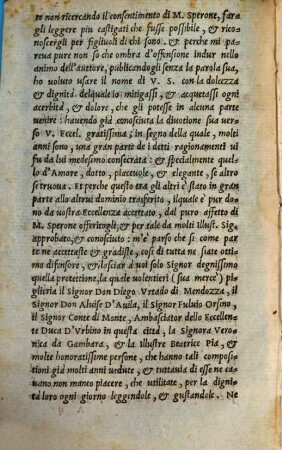 te non ricercando il consentimento di M. Sperone, fargli
gli leggere piu castigati che fusse possibile, & rico-
noscergli per figliuoli di chi sono. & perche mi pa-
reua pure non so che ombra d'offensione indur nello
animo dell'auttore, publicandogli senza la parola sua,
ho voluto usare il nome di V. S. con la dolcezza
& dignità delquale io mitigassi, & acquetassi ogni
acerbità, & dolore, che gli potesse in alcuna parte
uenire: hauendo già conosciuta la diuotione sua ver
so V. Eccel. gratissima; in segno della quale, molti
anni sono, una gran parte de i detti ragionamenti vi
fu da lui medesimo consecrata: & spetialmente quel-
lo d'Amore, dotto, piaceuole, & elegante, se altro
se ruoua. Et perche questo tra gli altri è stato in gran
parte allo altrui dominio trasferito, ilquale è pur do
no da uostra Eccellenza accettato, dal puro affetto di
M. Sperone offertoogli, & per tale da molti illust. Sig.
approbato, & conosciuto: m'è parso che si come par
te ne accettaste & gradiste, cosi di tutta ne siate otti
mo difensore, & lasciar à voi solo Signor degnissimo
quella protettione, la quale volentieri (sua mercé) pi-
glieria il Signor Don Diego Vrtado di Mendozza, il
Signor Don Aluise D'Auila, il Signor Fuluio Orsino,
il Signor Conte di Monte, Ambasciator dello Eccellen
te Duca D'Vrbino in questa città, la Signora Vero-
nica da Gambara, & la Illustre Beatrice Pia, &
molte honoratissime persone, che hanno tali composi-
tioni già molti anni uedute, & tuttauia di esse ne ca-
uano non manco piacere, che utilitate, per la digni-
tà loro ogni giorno leggendole, & gustandole. Ne